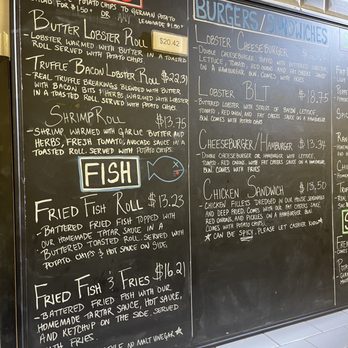 POTATO CHIPS TO GERMAN POTATO
SALAD FOR $1.50! OR LEMONADE $1.00!
BUTTER LOBSTER ROLL $20.42
LOBSTER WARMED WITH BUTTER IN A TOASTED
ROLL SERVED WITH POTATO CHIPS
TRUFFLE BACON LOBSTER ROLL $22.31
-REAL TRUFFLE SHAVINGS BLENDED WITH BUTTER
WITH BACON BITS & HERBS WARMED WITH LOBSTER
IN A TOASTED ROLL SERVED WITH POTATO CHIPS
SHRIMP ROLL $13.75
-SHRIMP WARMED WITH GARLIC BUTTER AND
HERBS, FRESH TOMATO, AVOCADO SAUCE IN A
TOASTED ROLL. SERVED WITH POTATO CHIPS.
FISH
FRIED FISH ROLL $13.23
-BATTERED FRIED FISH TOPPED WITH
OUR HOMEMADE TATAR SAUCE IN A
BUTTERED TOASTED ROLL. SERVED WITH
POTATO CHIPS & HOT SAUCE ON SIDE.
FRIED FISH & FRIES $16.21
-BATTERED FRIED FISH WITH OUR
HOMEMADE TATAR SAUCE, HOT SAUCE,
AND KETCHUP ON THE SIDE. SERVED
WITH FRIES.
AND MALT VINEGAR
BURGERS/SANDWICHES
LOBSTER CHEESEBURGER
LETTUCE, TOMATO, RED ONION AND
ON A HAMBURGER BUN. COMES WITH FRIES
LOBSTER BLT $18.75
-BUTTERED LOBSTER WITH STRIPS OF BACON, LETTUCE,
TOMATO, RED ONION, AND FAT CHERRIES SAUCE ON A HAMBURGER
BUN COMES WITH POTATO CHIPS
CHEESEBURGER/HAMBURGER $13.34
-DOUBLE CHEESE PATTIES WITH LETTUCE,
TOMATO, RED ONION, WITH FAT CHERRIES SAUCE ON A HAMBURGER
BUN WITH FRIES
CHICKEN SANDWICH $15.50
-CHICKEN FILLETS DREDGED IN OUR HOUSE SEASONINGS
AND DEEP FRIED. COMES WITH OUR FAT CHERRIES SAUCE,
RED ONIONS, AND PICKLES ON A HAMBURGER BUN.
COMES WITH POTATO CHIPS.
*CAN BE SPICY, PLEASE LET CASHIER KNOW*